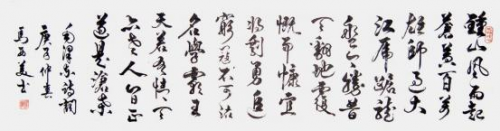 鍾山風雨起
蒼黄百万
雄師過大
江虎踞龍
盤今勝昔
天翻地覆
慨而慷宜
将剩勇追
窮寇不可沽
名學霸王
天若有情天
亦老人間正
道是滄桑
毛澤东詩詞
庚子仲春